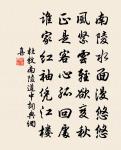 南陵水面漫悠悠
風緊雲輕欲變秋
正是客心孤迥處
誰家紅袖凭江樓
杜牧南陵道中詞典網